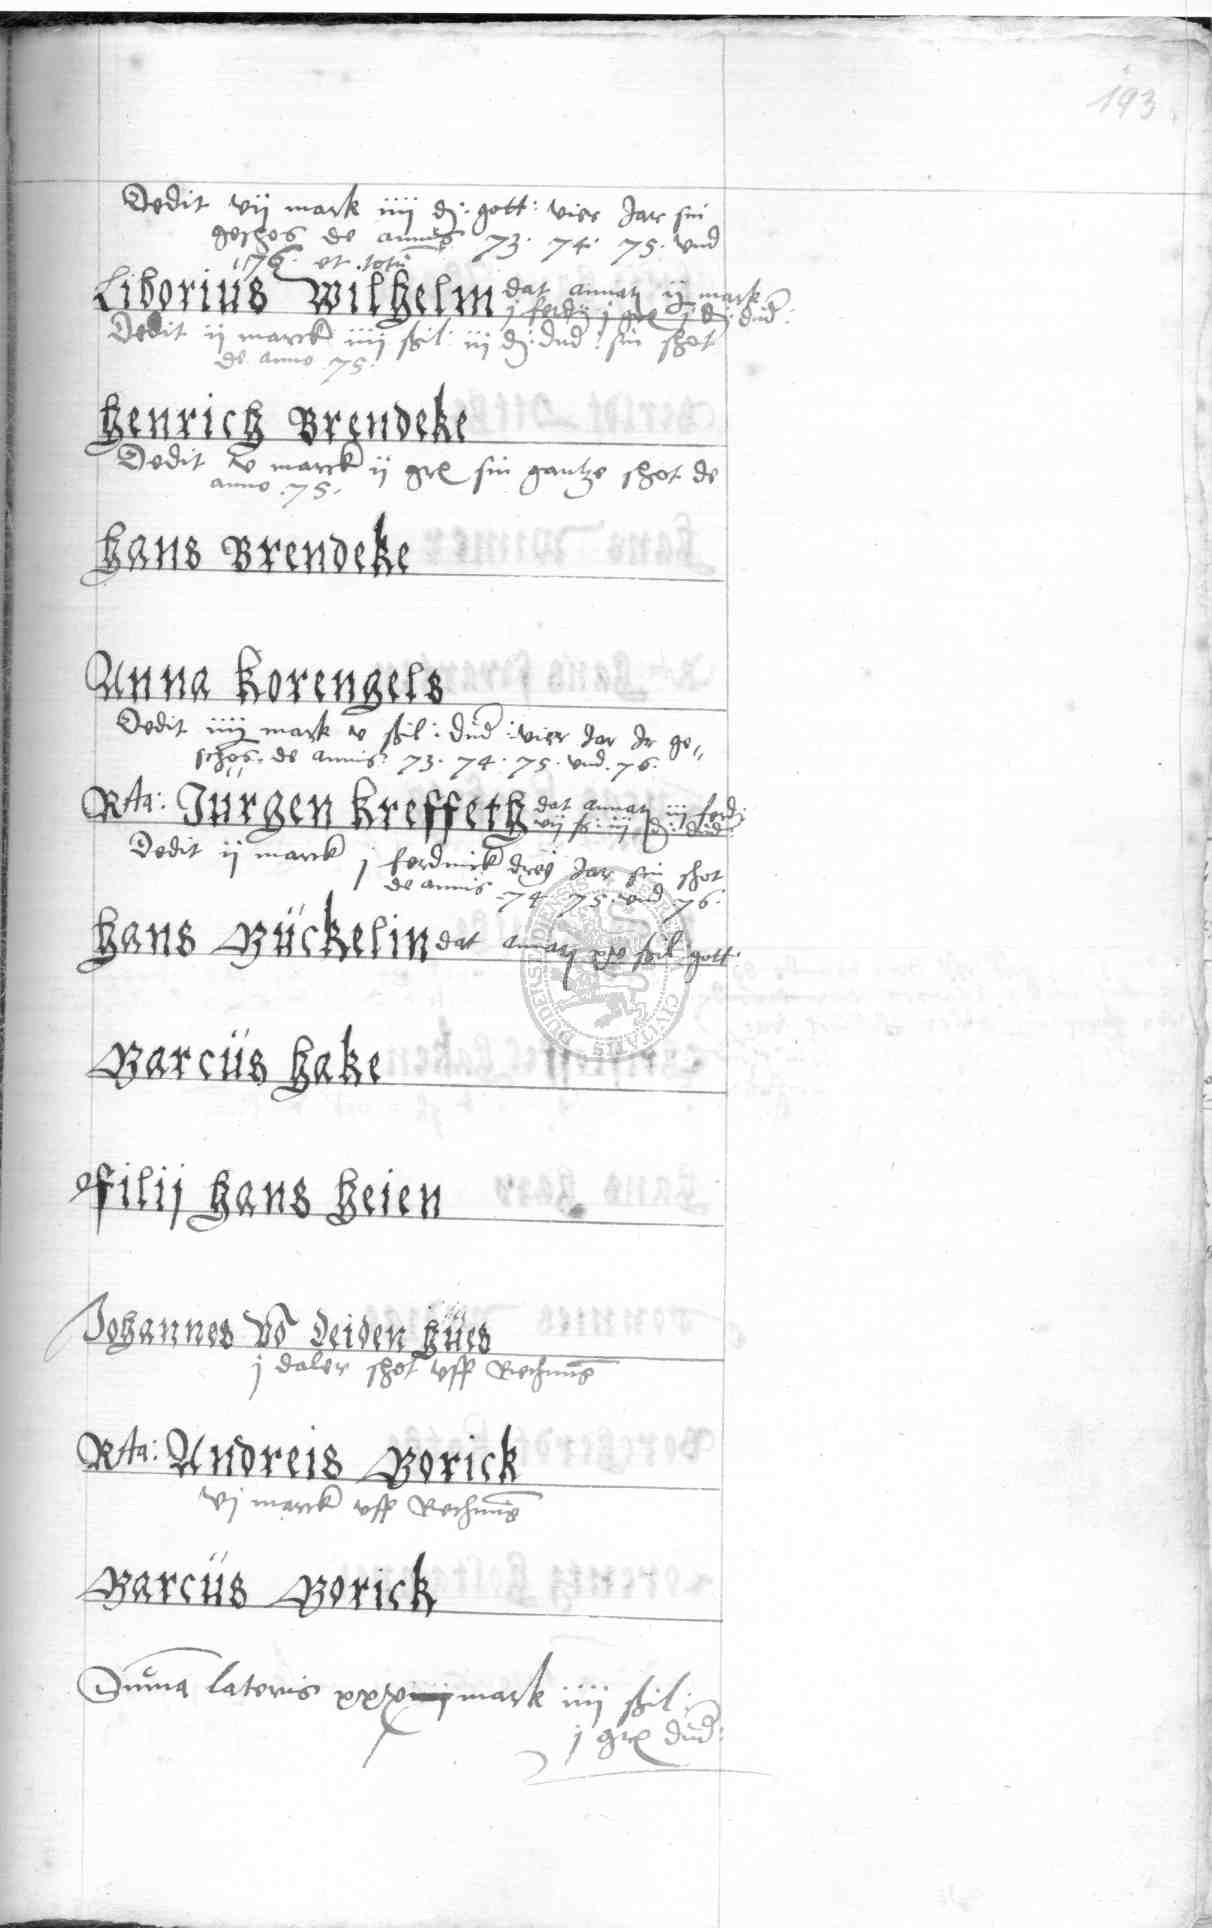 193
Dedit vij mark iiij d: gott: vier Jar sin
geschos de annis 73. 74. 75. vnd
1576. et totu
Liborius Wilhelm dat annatj ij mark
j ferdij j gre ij d: dud:
Dedit ij marck iiij skil: iij d: dud: sin shot
de anno 75.
Henrich Brendeke
Dedit v marck ij gre sin gantze shot de
anno .75.
Hans Brendeke
Anna Korengels
Dedit iiij mark v skil: dud: vier Jar Ir ge„
schos. de annis 73. 74. 75. vnd. 76.
Rta: Jürgen Kreffeth dat annatj iij ferd:
vij s: iij d: dud:
Dedit ij marck j ferdink drej Jar sin shot
de annis 74 75. vnd 76.
Hans Bückelin dat annatj skil gott:
DUDERSTADIENSIS CIVITATIS
Barcüs Hake
Filij Hans Heien
Johannes vo Leiden Hües
j daler shot vff Rechnūg
Rta: Andreis Borick
vj marck vff Rechnūg
Barcüs Borick
Suma lateris xxv mark iiij skil:
j gre dud: